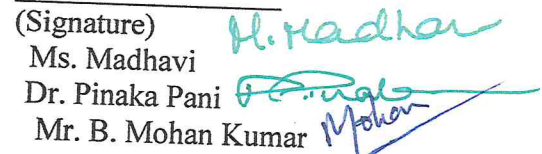 (Signature) M. Madhavi
Ms. Madhavi
Dr. Pinaka Pani
Mr. B. Mohan Kumar Mohan